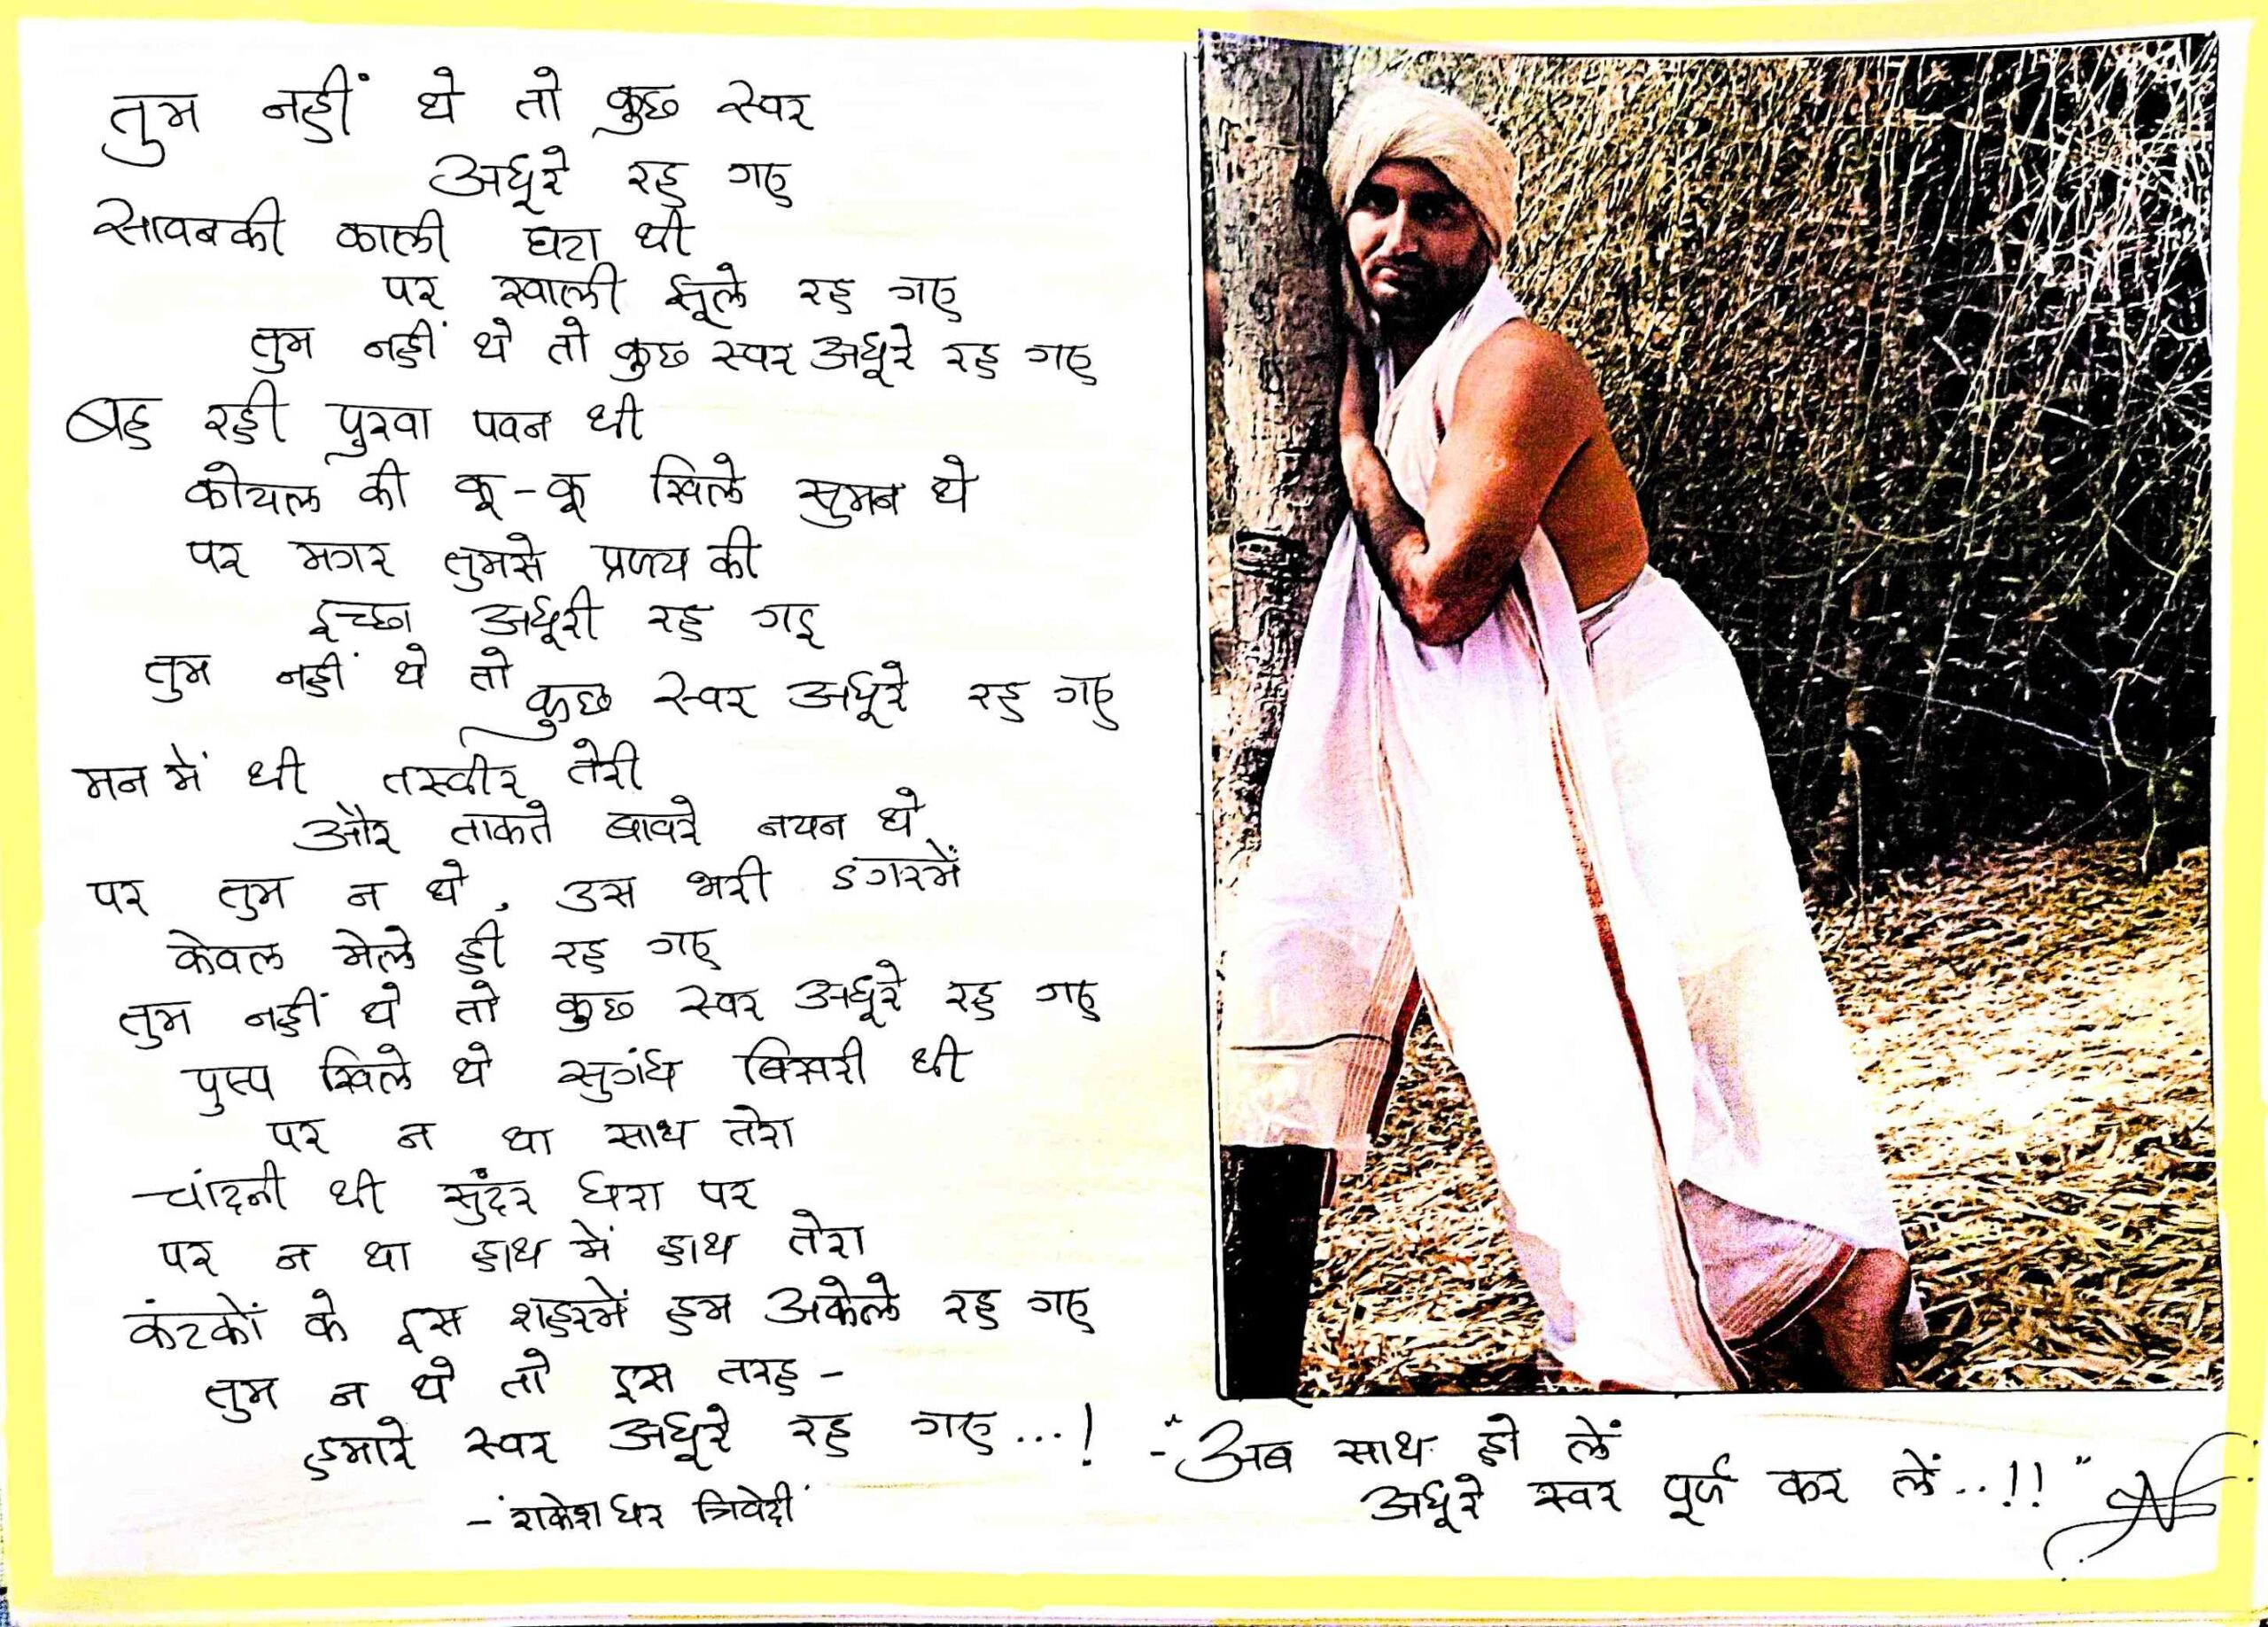 तुम नहीं थे तो कुछ स्वर
अधूरे रह गए
सावनकी काली घटा थी
पर खाली झूले रह गए
तुम नहीं थे तो कुछ स्वर अधूरे रह गए
बह रही पुरवा पवन थी
कोयल की कू-कू खिले सुमन थे
पर मगर तुमसे प्रणय की
इच्छा अधूरी रह गइ
तुम नहीं थे तो कुछ स्वर अधूरे रह गए
मन में थी तस्वीर तेरी
और ताकते बावरे नयन थे
पर तुम न थे, उस भरी डगरमें
केवल मेले ही रह गए
तुम नहीं थे तो कुछ स्वर अधूरे रह गए
पुष्प खिले थे सुगंध बिखरी थी
पर न था साथ तेरा
चांदनी थी सुंदर धरा पर
पर न था हाथ में हाथ तेरा
कंटकों के इस शहरमें हम अकेले रह गए
तुम न थे तो इस तरह -
हमारे स्वर अधूरे रह गए...!
- राकेश धर त्रिवेदी
-"अब साथ हो लें
अधूरे स्वर पूर्ण कर लें..!!"